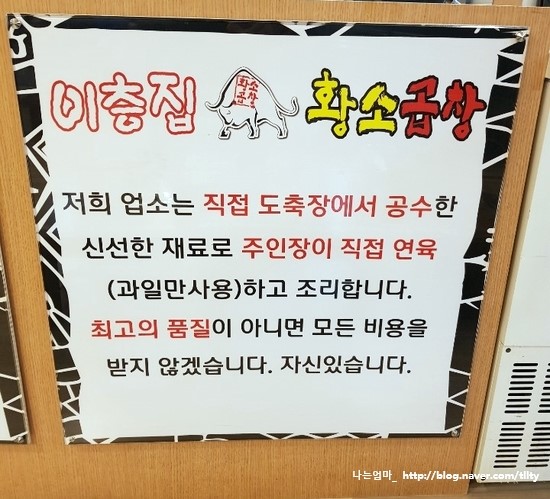 이층집 황소곱창 황소곱창
저희 업소는 직접 도축장에서 공수한
신선한 재료로 주인장이 직접 연육
(과일만사용)하고 조리합니다.
최고의 품질이 아니면 모든 비용을
받지 않겠습니다. 자신있습니다.
나는엄마_ http://blog.naver.com/tlity